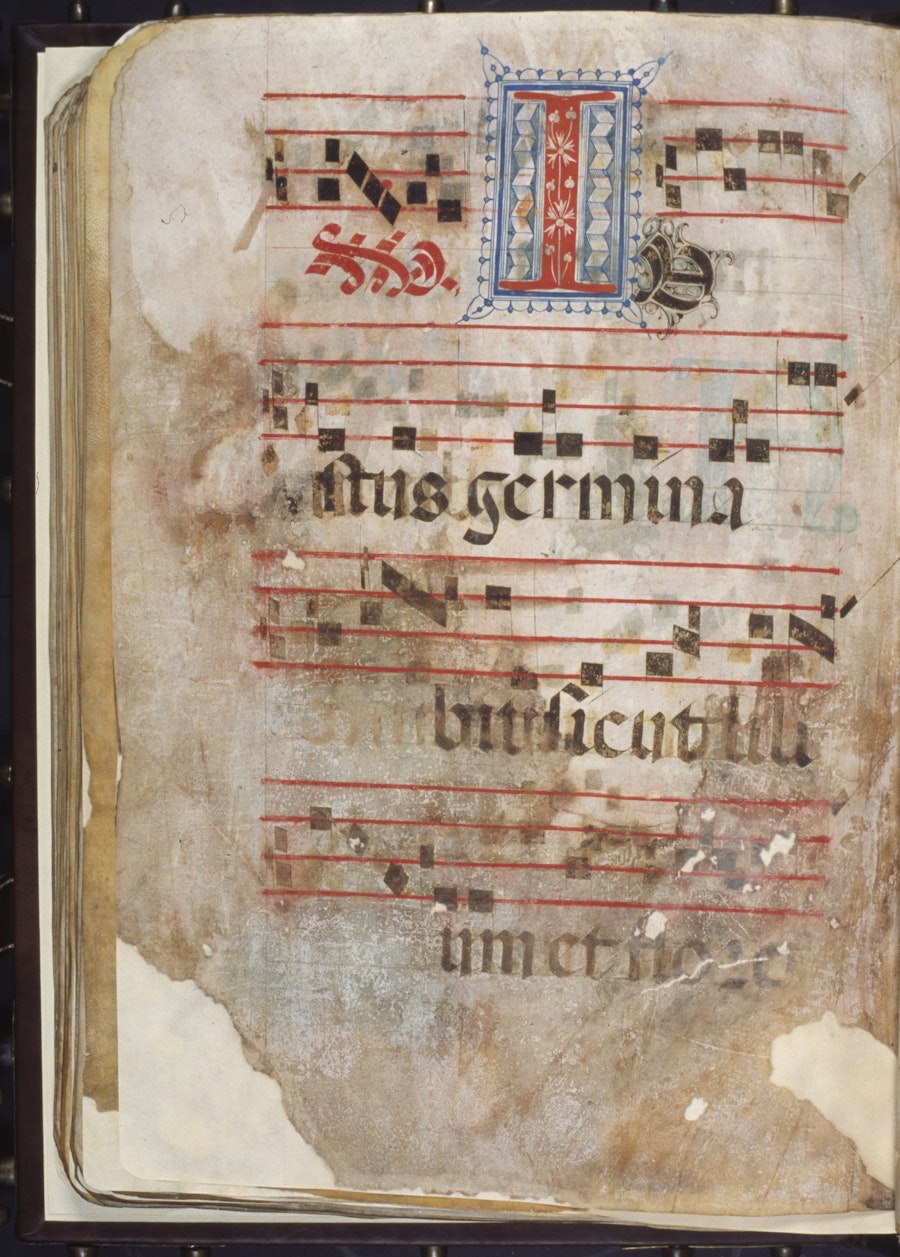 IU
stus germina
bit sicut lili
um et flore